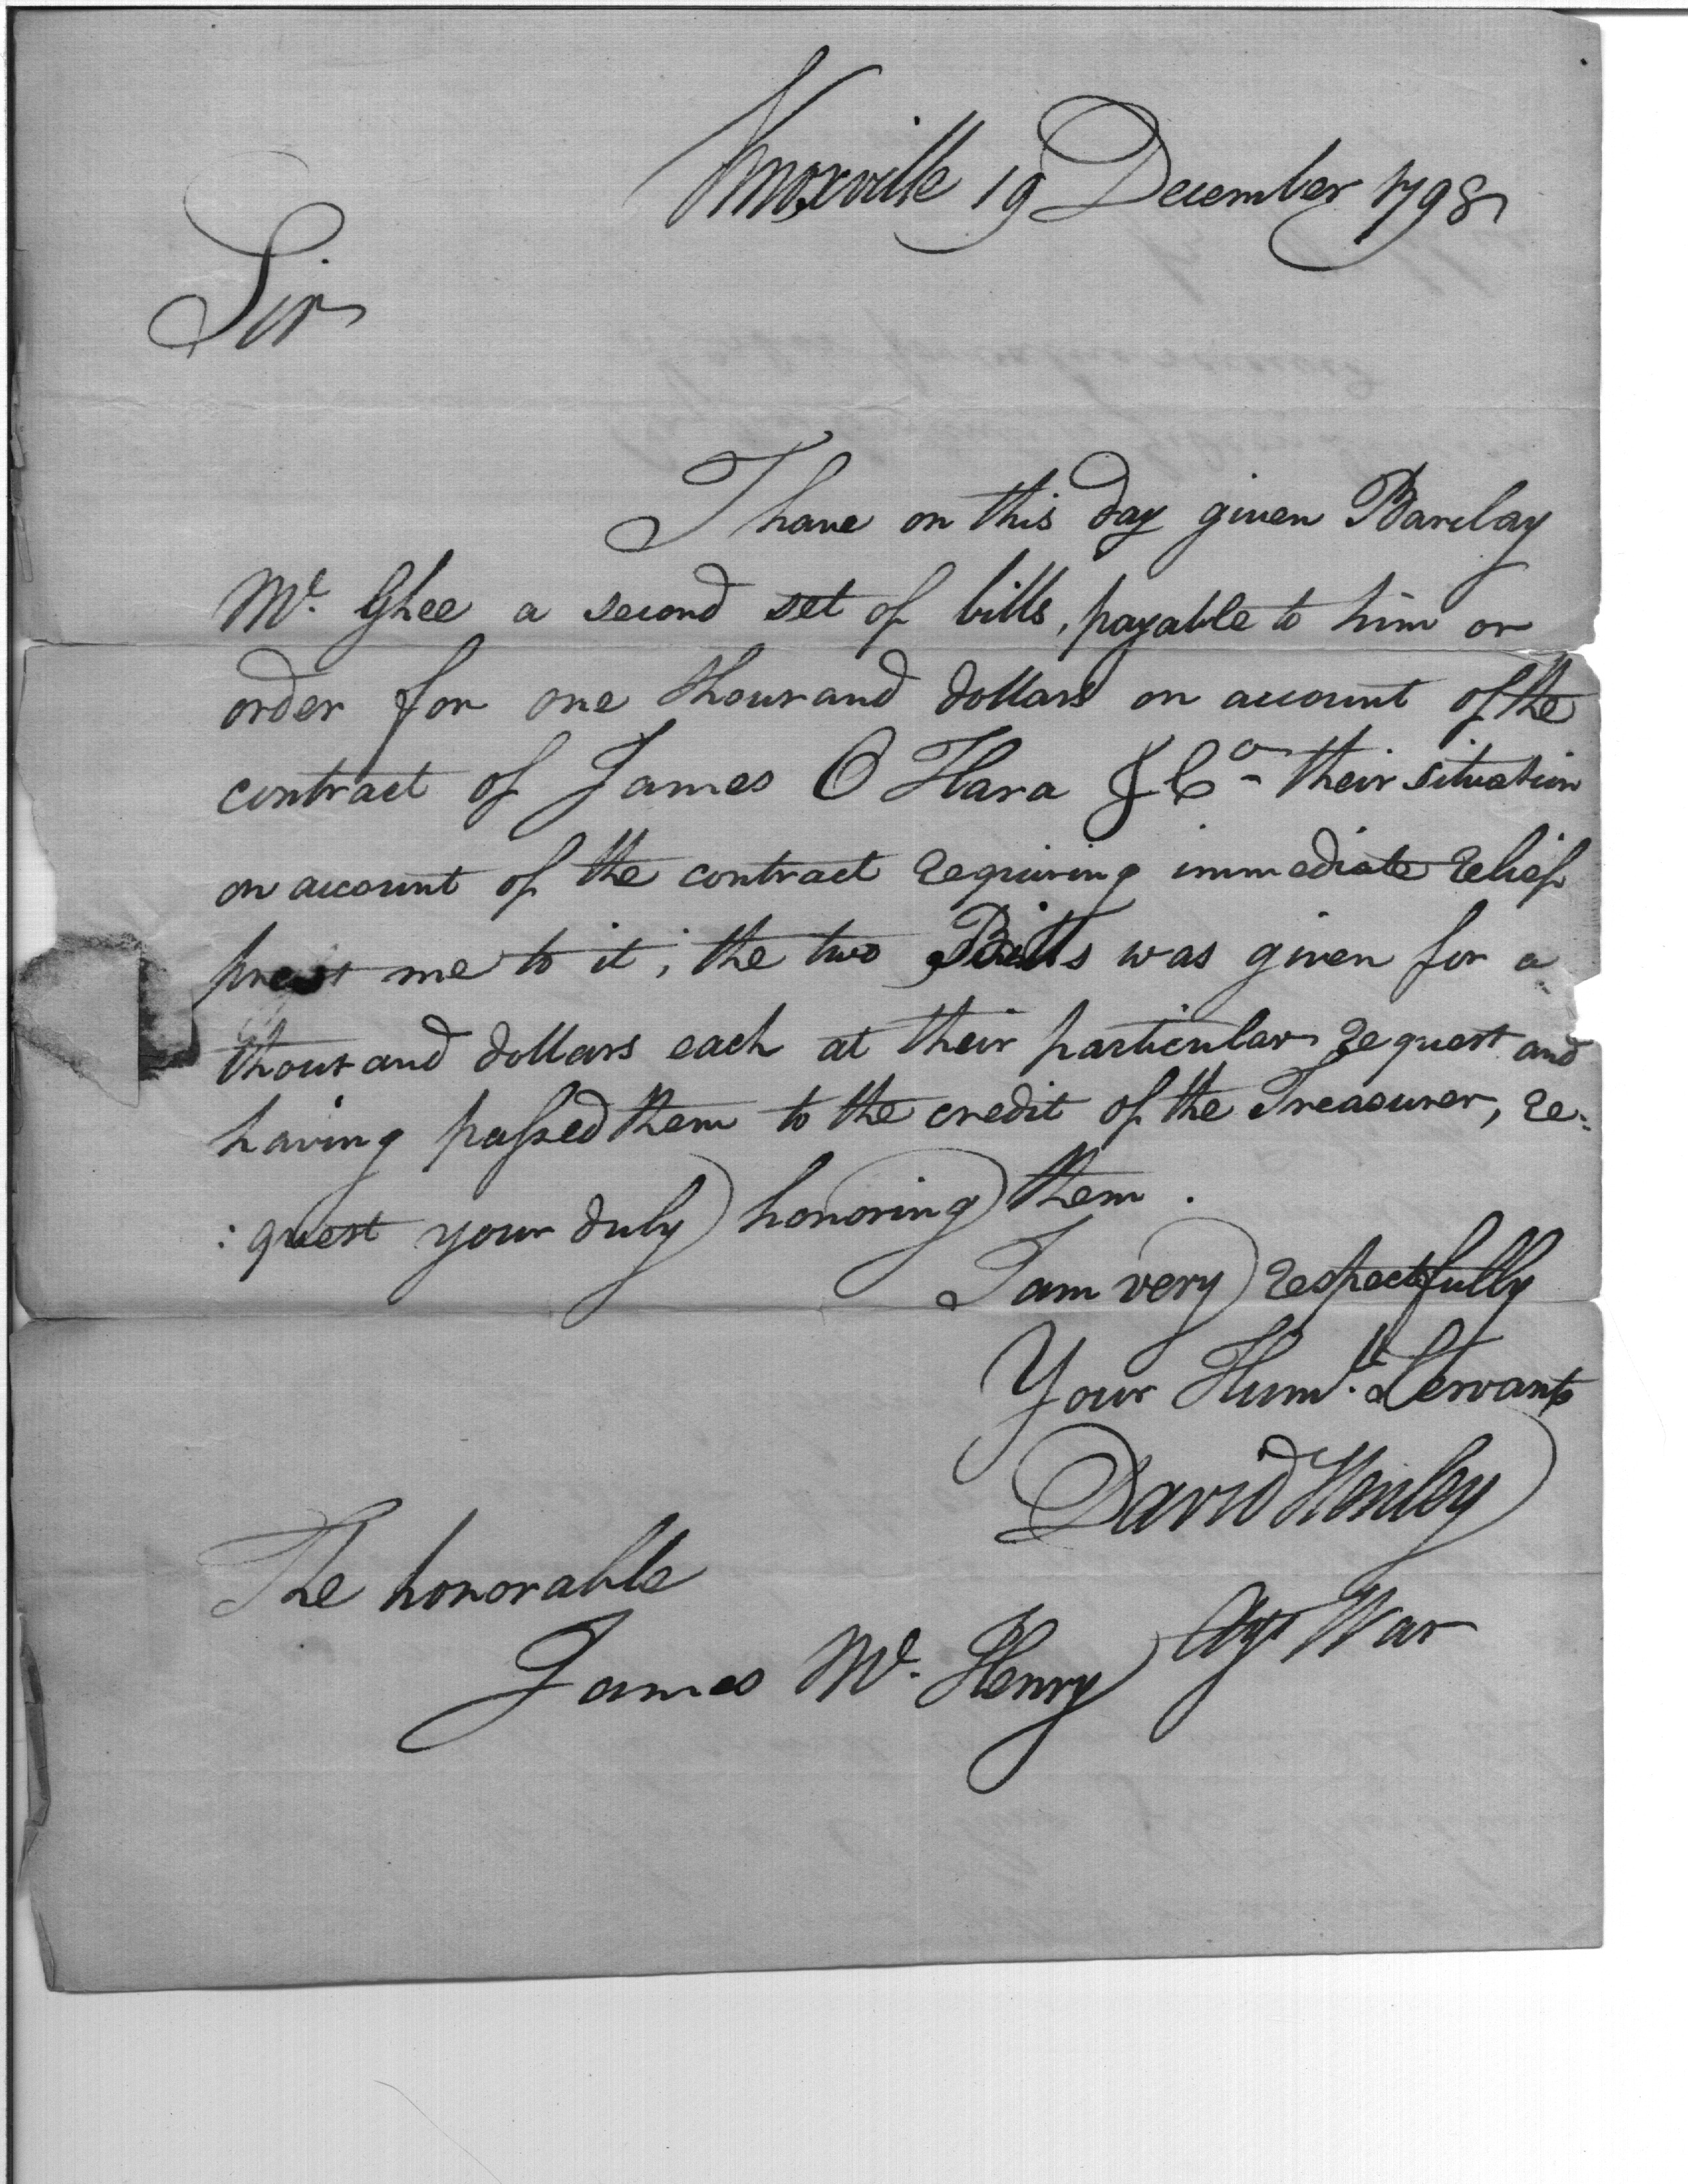 Knoxville 19 December 1798
Sir
I have on this day given Barclay
Mc. Ghee a second set of bills, payable to him or
order for one thousand dollars on account of the
contract of James O Hara & Co. their situation
on account of the contract requiring immediate relief
prest me to it; the two Bills was given for a
thousand dollars each at their particular request and
having passed them to the credit of the Treasurer, re-
:quest your duly honoring them.
I am very respectfully
Your Humle. Servant
David Henley
The honorable
Agt War
James Mc. Henry